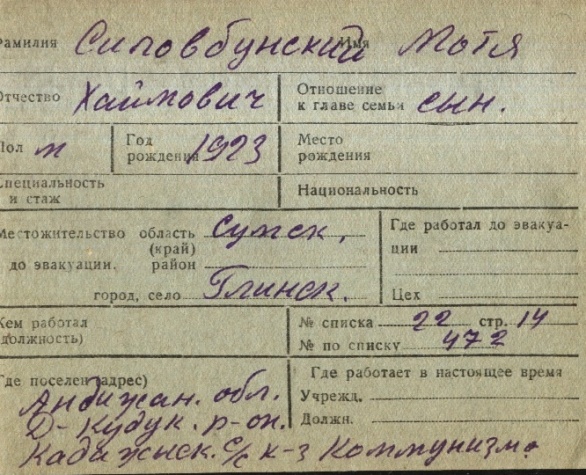 Фамилия Сиповбунский Имя Мотя
Отчество Хаймович Отношение к главе семьи сын.
Пол м Год рождения 1923 Место рождения
Специальность и стаж Национальность
Местожительство область Сумск, Где работал до эвакуа-
(край) ции
до эвакуации. район
город, село Глинск. Цех
Кем работал № списка 22 стр. 14
(должность) № по списку 472
Где поселен (адрес) Где работает в настоящее время
Андижан. обл. Учрежд.
Д-Кудук. р-он. Должн.
Кадижыск. с/с к-з Коммунизм.